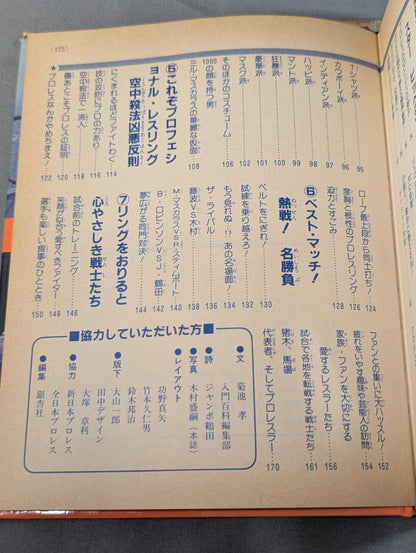 (175)
Tシャツ派……95
カウボーイ派……96
インディアン派……97
ハッピ派……98
マント派……99
狂暴派……100
豪華派……101
マスク派……102
そのほかのコスチューム……106
1000の顔を持つ男
ミル・マスカラスの華麗な仮面……108
⑤これぞプロフェショナル・レスリング
空中殺法凶悪反則
にくまれるほどファイトわく……114
技の攻防にプロの力あり……116
空中殺法で一流人……118
傷あとこそプロレスの証明……120
★プロレスなんかやめちまえ!……122
ロープ最上段から同士打ち!……124
度胸と根性のプロレスリング……126
迫力とすごみ……128
⑥ベスト・マッチ!
熱戦! 名勝負
ベルトをはぎとれ!……130
試練を乗り越えろ!……132
もう見れぬ!? あの名場面!……134
ザ・ライバル……136
藤波VS木村……138
M・マスカラスVSR・スティムボート……140
B・ロビンソンVSJ・鶴田……142
夢広がる同門対決!……144
⑦リングをおりると
心やさしき戦士たち
試合前のトレーニング……146
笑顔が似合う愛すべきファイター……148
選手も楽しい食事のひととき……150
ファンとの集いに大ハッスル!……152
疲れをいやす趣味や芸能人の訪問……154
家族・ファンを大切にする
愛するレスラーたち……156
試合で各地を転戦する戦士たち……161
猪木、馬場
代表者、そしてプロレスラー……170
■協力していただいた方■
●文 菊池 孝
入門百科編集部
●詩 ジャンボ鶴田
●写真 木村盛綱(本誌)
●レイアウト
功野真矢
竹本久仁男
鈴木邦治
●版下 大山一郎
田中デザイン
大塚章利
●協力 新日本プロレス
全日本プロレス
●編集 銀杏社